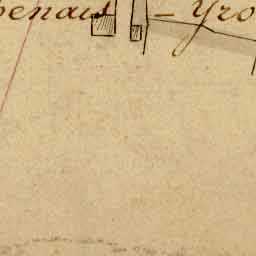 penais - Yro